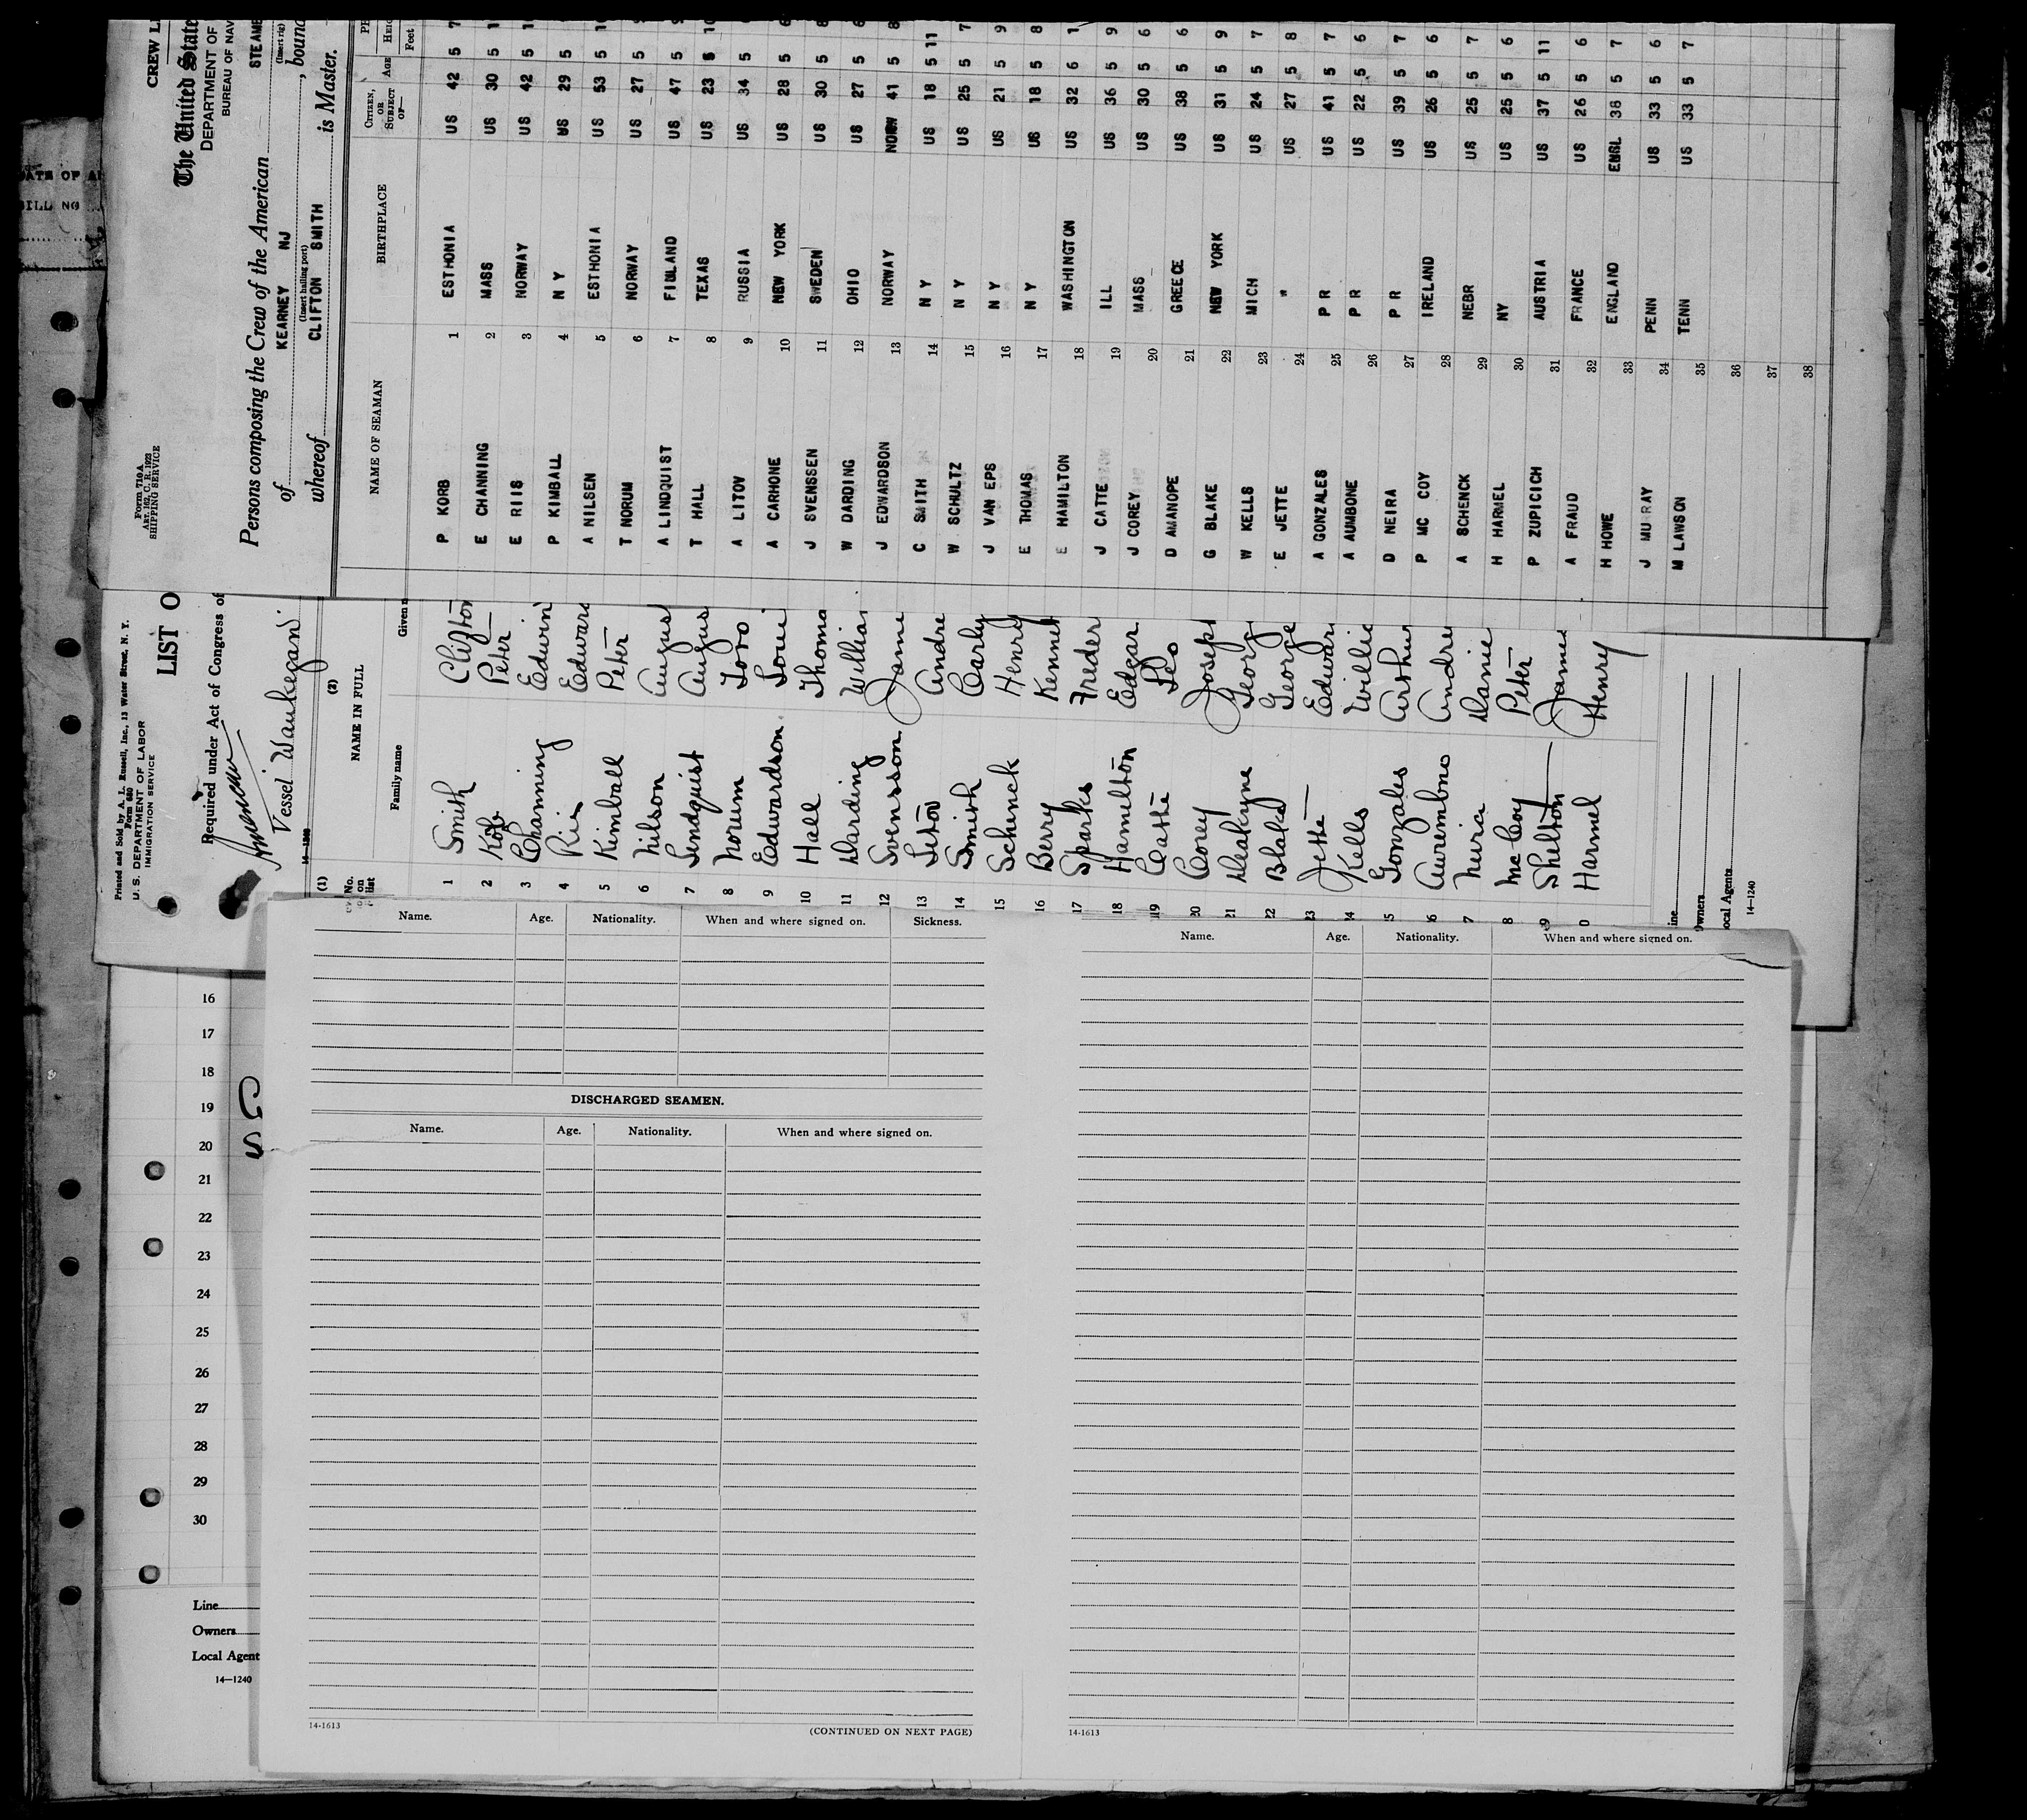 CREW LI
Form 710A
ART. 162, C. R. 1923
SHIPPING SERVICE
The United State
DEPARTMENT OF
BUREAU OF NAV
Persons composing the Crew of the American STEAMS
(Insert rig)
of KEARNEY NJ, bound
(Insert hailing port)
whereof CLIFTON SMITH is Master.
NAME OF SEAMAN BIRTHPLACE CITIZEN, OR SUBJECT OF— AGE Feet
P KORB 1 ESTHONIA US 42 5 7
E CHANNING 2 MASS US 30 5
E RIIS 3 NORWAY US 42 5
P KIMBALL 4 N Y US 29 5
A NILSEN 5 ESTHONIA US 53 5
T NORUM 6 NORWAY US 27 5
A LINDQUIST 7 FINLAND US 47 5
T HALL 8 TEXAS US 23 5
A LITOV 9 RUSSIA US 34 5
A CARHONE 10 NEW YORK US 28 5
J SVENSSEN 11 SWEDEN US 30 5
W DARDING 12 OHIO US 27 5
J EDWARDSON 13 NORWAY NORW 41 5 8
C SMITH 14 N Y US 18 5 11
W SCHULTZ 15 N Y US 25 5 7
J VAN EPS 16 N Y US 21 5 9
E THOMAS 17 N Y US 18 5 8
E HAMILTON 18 WASHINGTON US 32 6 1
J CATTE 19 ILL US 36 5 9
J COREY 20 MASS US 30 5 6
D AMANOPE 21 GREECE US 38 5 6
G BLAKE 22 NEW YORK US 31 5 9
W KELLS 23 MICH US 24 5 7
E JETTE 24 " US 27 5 8
A GONZALES 25 P R US 41 5 7
A AUMBONE 26 P R US 22 5 6
D NEIRA 27 P R US 39 5 7
P MC COY 28 IRELAND US 26 5 6
A SCHENCK 29 NEBR US 25 5 7
H HARMEL 30 NY US 25 5 6
P ZUPICICH 31 AUSTRIA US 37 5 11
A FRAUD 32 FRANCE US 26 5 6
H HOWE 33 ENGLAND ENGL 38 5 7
J MURRAY 34 PENN US 33 5 6
M LAWSON 35 TENN US 33 5 7
36
37
38
Printed and Sold by A. L. Russell, Inc., 13 Water Street, N. Y.
Form 680
U. S. DEPARTMENT OF LABOR
IMMIGRATION SERVICE
LIST O
Required under Act of Congress of
American
Vessel Waukegan
14—1240
(1) (2)
No. on list NAME IN FULL
Family name Given n
1 Smith Clifton
2 Kob Peter
3 Channing Edwin
4 Riis Edward
5 Kimball Peter
6 Nilson August
7 Lindquist Augus
8 Norum Toro
9 Edwardson Loui
10 Hall Thoma
11 Darding Willia
12 Svensson Jame
13 Letov Andre
14 Smith Carly
15 Schenck Henry
16 Berry Kennet
17 Sparks Freder
18 Hamilton Edgar
19 Catte Leo
20 Corey Joseph
21 Deakyne George
22 Blake George
23 Jette Edwar
24 Kells Willia
5 Gonzales Arthur
6 Aurembno Andre
7 Nuria Danie
8 McCoy Peter
9 Shelton James
0 Harmel Henry
ine
Owners
ocal Agents
14—1240
DATE OF A
BILL NO
16
17
18
19
20
21
22
23
24
25
26
27
28
29
30
Line
Owners
Local Agent
14—1240
Name. Age. Nationality. When and where signed on. Sickness.
DISCHARGED SEAMEN.
Name. Age. Nationality. When and where signed on.
14-1613 (CONTINUED ON NEXT PAGE)
Name. Age. Nationality. When and where signed on.
14-1613